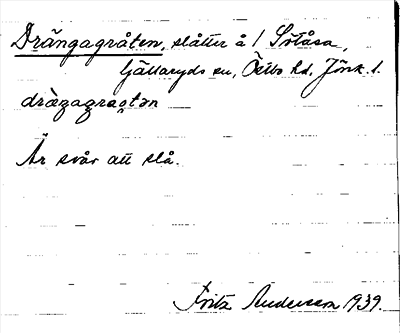 Drängagråten, slåtter å / Svtåsa,
Gällaryds sn, Östbo hd, Jönk. l.
dràngagråo̭tən
Är svår att slå.
Fritz Andersson 1939.